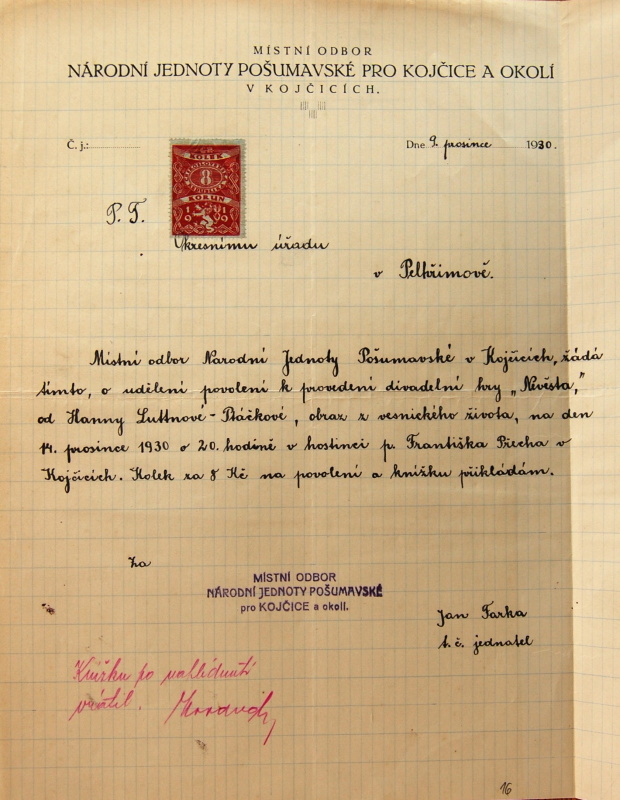 MÍSTNÍ ODBOR
NÁRODNÍ JEDNOTY POŠUMAVSKÉ PRO KOJČICE A OKOLÍ
V KOJČICÍCH.
Č. j.:
Dne 9. prosince 1930.
KOLEK
8
KORUN
P. T.
Okresnímu úřadu
v Pelhřimově.
Místní odbor Národní Jednoty Pošumavské v Kojčicích, žádá
tímto, o udělení povolení k provedení divadelní hry „Nevěsta,"
od Hanny Luttnové-Ptáčkové, obraz z vesnického života, na den
14. prosince 1930 o 20. hodině v hostinci p. Františka Přecha v
Kojčicích. Kolek za 8 Kč na povolení a knížku přikládám.
Za
MÍSTNÍ ODBOR
NÁRODNÍ JEDNOTY POŠUMAVSKÉ
pro KOJČICE a okolí.
Jan Farka
t. č. jednatel
Knížku po nahlédnutí
vrátil.
16